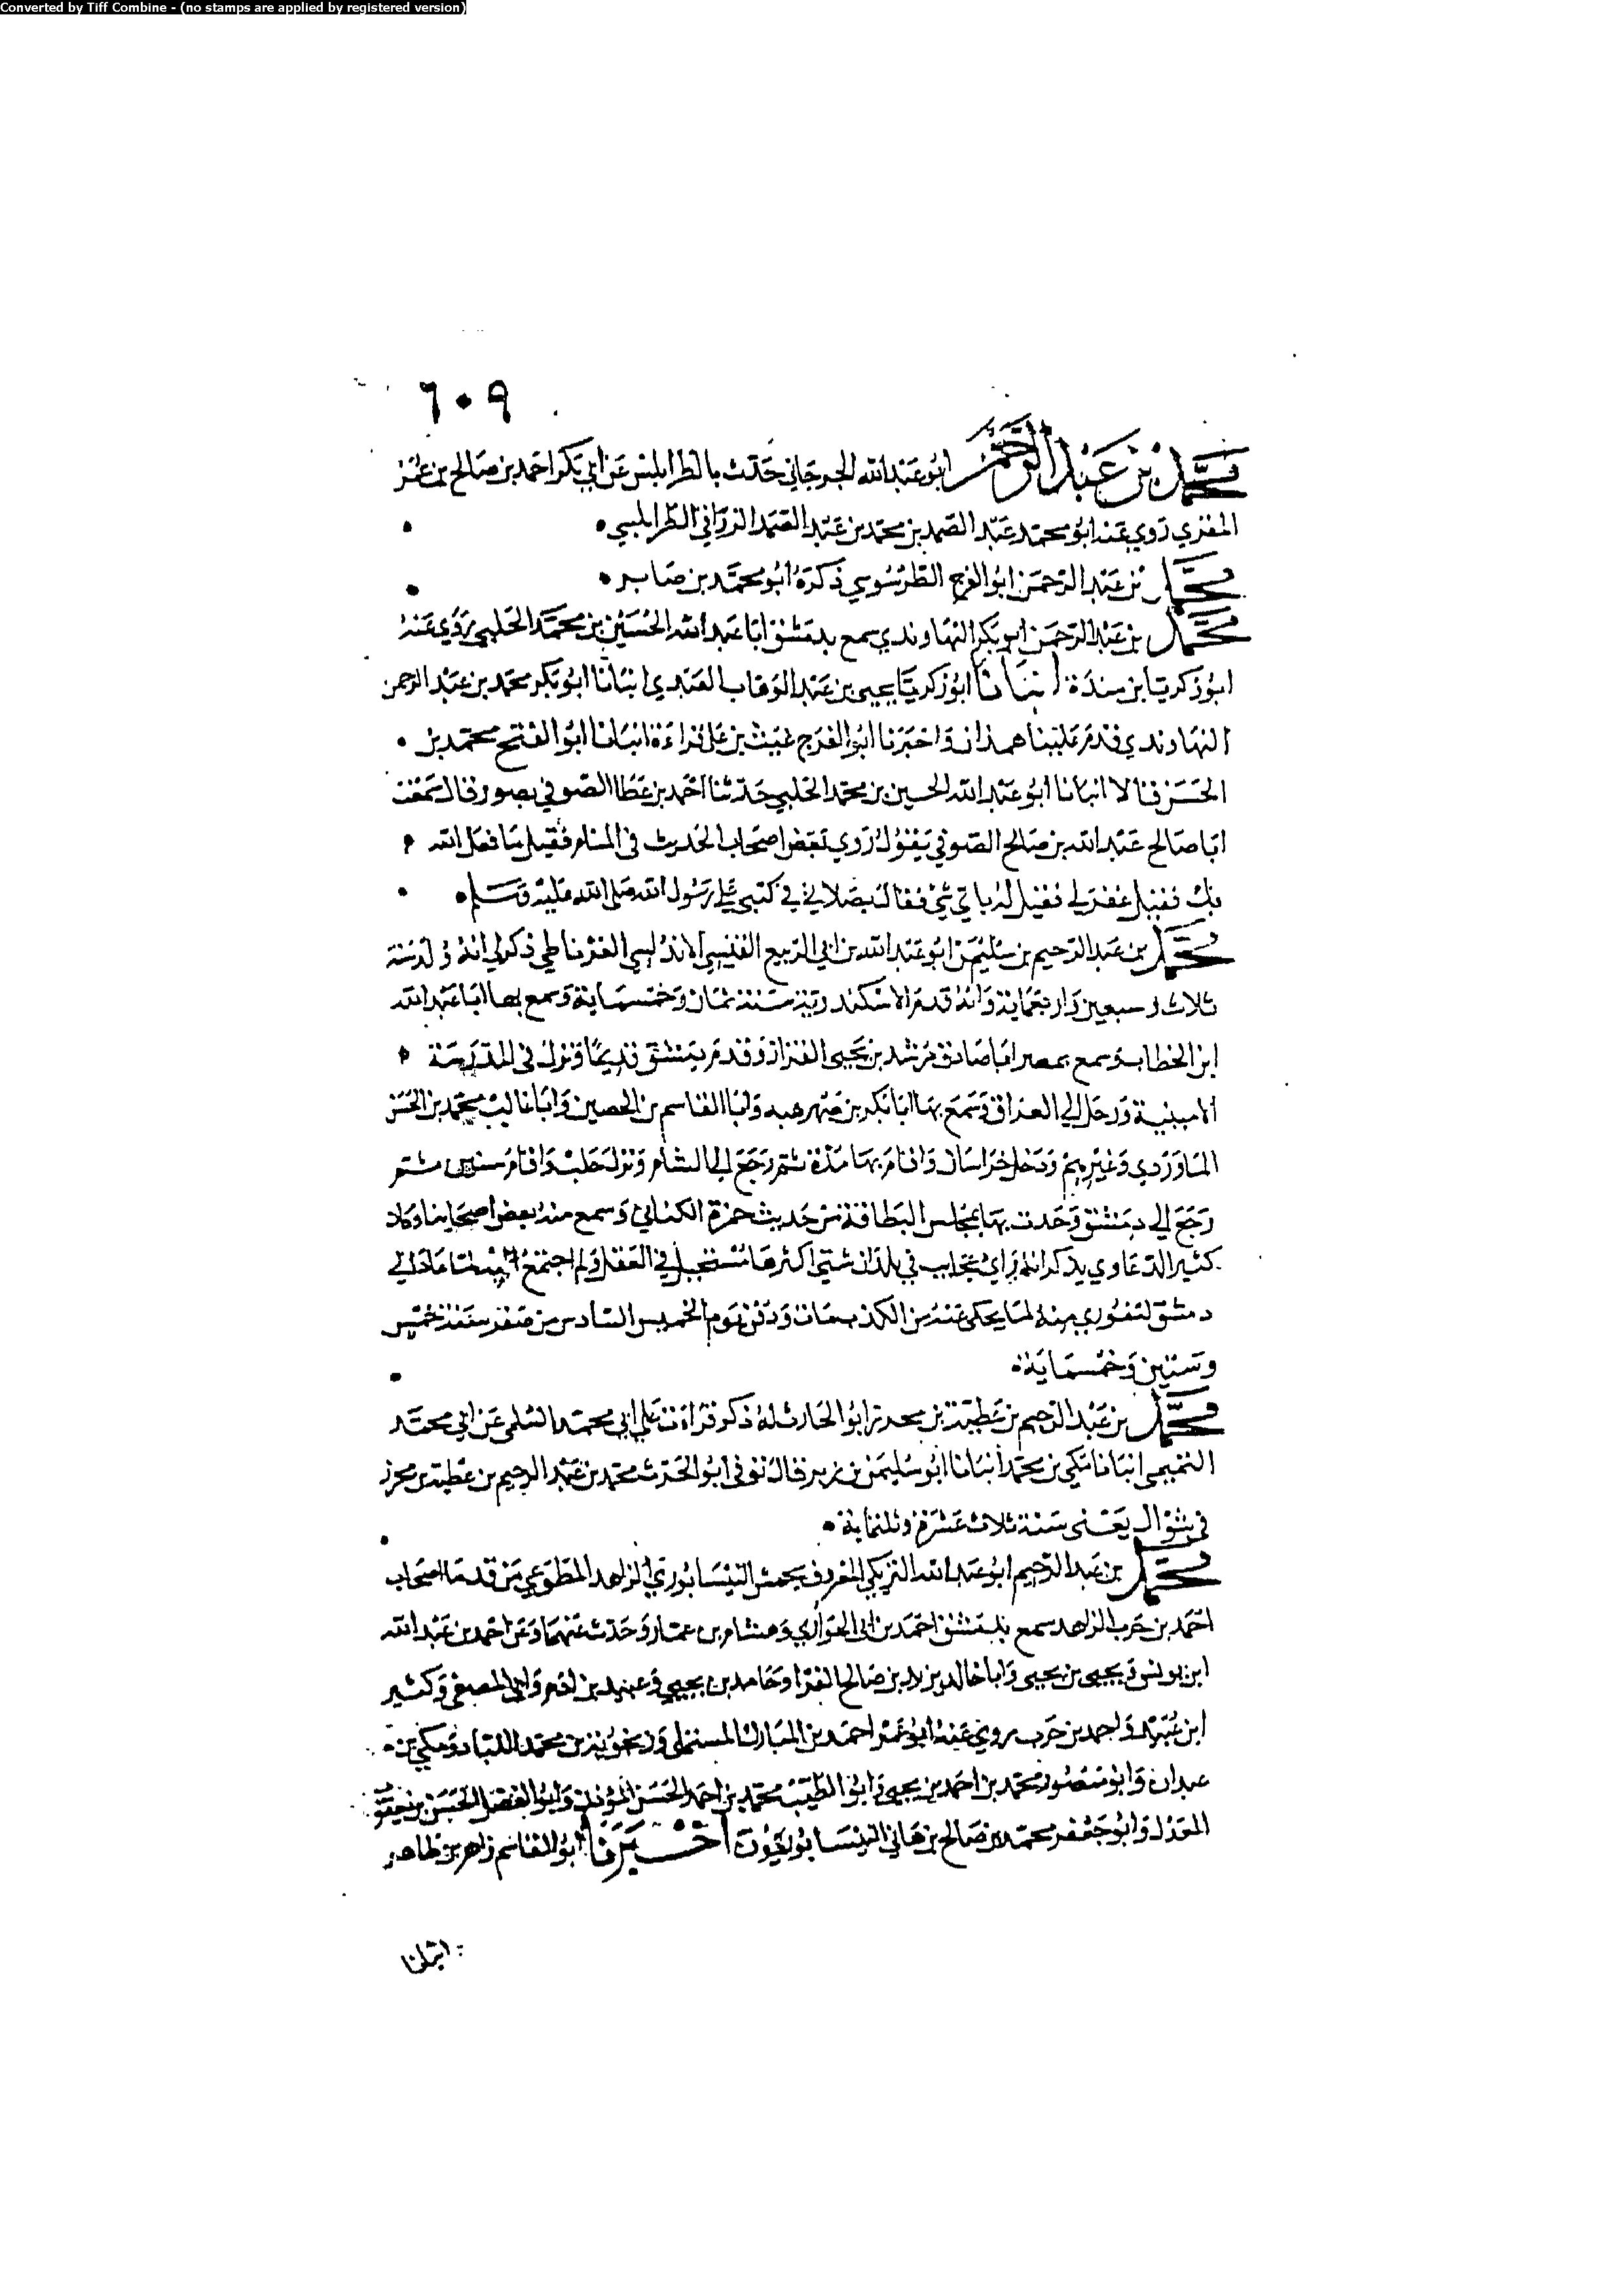 Converted by Tiff Combine - (no stamps are applied by registered version)
٦٠٩
محمد بن عبد الرحمن ابو عبد الله الجرجاني حدث بالطرابلس عن ابي بكر احمد بن صالح بن عمر
المقري روي عنه ابو محمد عبد الصمد بن محمد بن عبد الصمد الزرافي الطرابلسي
محمد بن عبد الرحمن ابو الفرج الطرسوسي ذكره ابو محمد بن صابر
محمد بن عبد الرحمن ابو بكر النهاوندي سمع بدمشق ابا عبد الله الحسين بن محمد الحلبي روي عنه
ابو زكريا بن مندة انبانا ابو زكريا يحيي بن عبد الوهاب العبدي انبانا ابو بكر محمد بن عبد الرحمن
النهاوندي قدم علينا همذان واخبرنا ابو الفرج غيث بن علي قراءة انبانا ابو الفتح محمد بن
الحسن قالا انبانا ابو عبد الله الحسين بن محمد الحلبي حدثنا احمد بن عطا الصوفي بصور قال سمعت
ابا صالح عبد الله بن صالح الصوفي يقول روي بعض اصحاب الحديث في المنام فقيل ما فعل الله
بك فقيل غفر لي فقيل له باي شي فقال بصلاتي في كتبي علي رسول الله صلى الله عليه وسلم
محمد بن عبد الرحيم بن سليمن ابو عبد الله بن ابي الربيع القيسي الاندلسي الغرناطي ذكر لي انه ولد سنة
ثلاث وسبعين واربعماية وانه قدم الاسكندرية سنة ثمان وخمسماية وسمع بها ابا عبد الله
ابن الخطاب وسمع بمصر ابا صادق مرشد بن يحيى القزاز وقدم دمشق قديما ونزل في المدرسة
الامينية ورحل الي العراق وسمع بها ابا بكر بن وابا القاسم بن الحصين وابا غالب محمد بن الحسن
الماوردي وغيرهم ودخل خراسان واقام بها مدة ثم رجع الي الشام ونزل حلب واقام سنين ثم
رجع الي دمشق وحدث بها بمجلس البطاقة من حديث حمزة الكناني وسمع منه بعض اصحابنا وكان
كثير الدعاوي يذكر انه راي عجايب في بلدان شتي اكثرها مستحيل في العقل ولم اجتمع به لما عاد الي
دمشق لنفوري منه لما يحكي عنه من الكذب مات ودفن يوم الخميس السادس من صفر سنة خمس
وستين وخمسماية
محمد بن عبد الرحيم بن عطية بن محرز ابو الحارث له ذكر قرات علي ابي محمد السلمي عن ابي محمد
التميمي انبانا مكي بن محمد انبانا ابو سليمن بن زبر قال توفي ابو الحرث محمد بن عبد الرحيم بن عطية بن محرز
في شوال يعني سنة ثلاث عشرة وثلثماية
محمد بن عبد الرحيم ابو عبد الله المعروف بحمش النيسابوري الزاهد المطوعي من قدما اصحاب
احمد بن حرب الزاهد سمع بدمشق احمد بن ابي الحواري وهشام بن عمار وحدث عنهما وعن احمد بن عبد الله
ابن يونس ويحيي بن يحيي وابا خالد يزيد بن صالح الفرا وحامد بن يحيي وعبيد بن ادم وابن المصفي وكثير
ابن عبيد واحمد بن حرب روي عنه ابو عمر احمد بن المبارك المستملي وزنجويه بن محمد اللباد ومكي بن
عبدان وابو منصور محمد بن احمد بن يحيي وابو الطيب محمد بن احمد الحسن المؤذن وابو الفضل الحسن بن يعقوب
المعدل وابو جعفر محمد بن صالح بن هاني النيسابوريون اخبرنا ابو القاسم زاهر بن طاهر